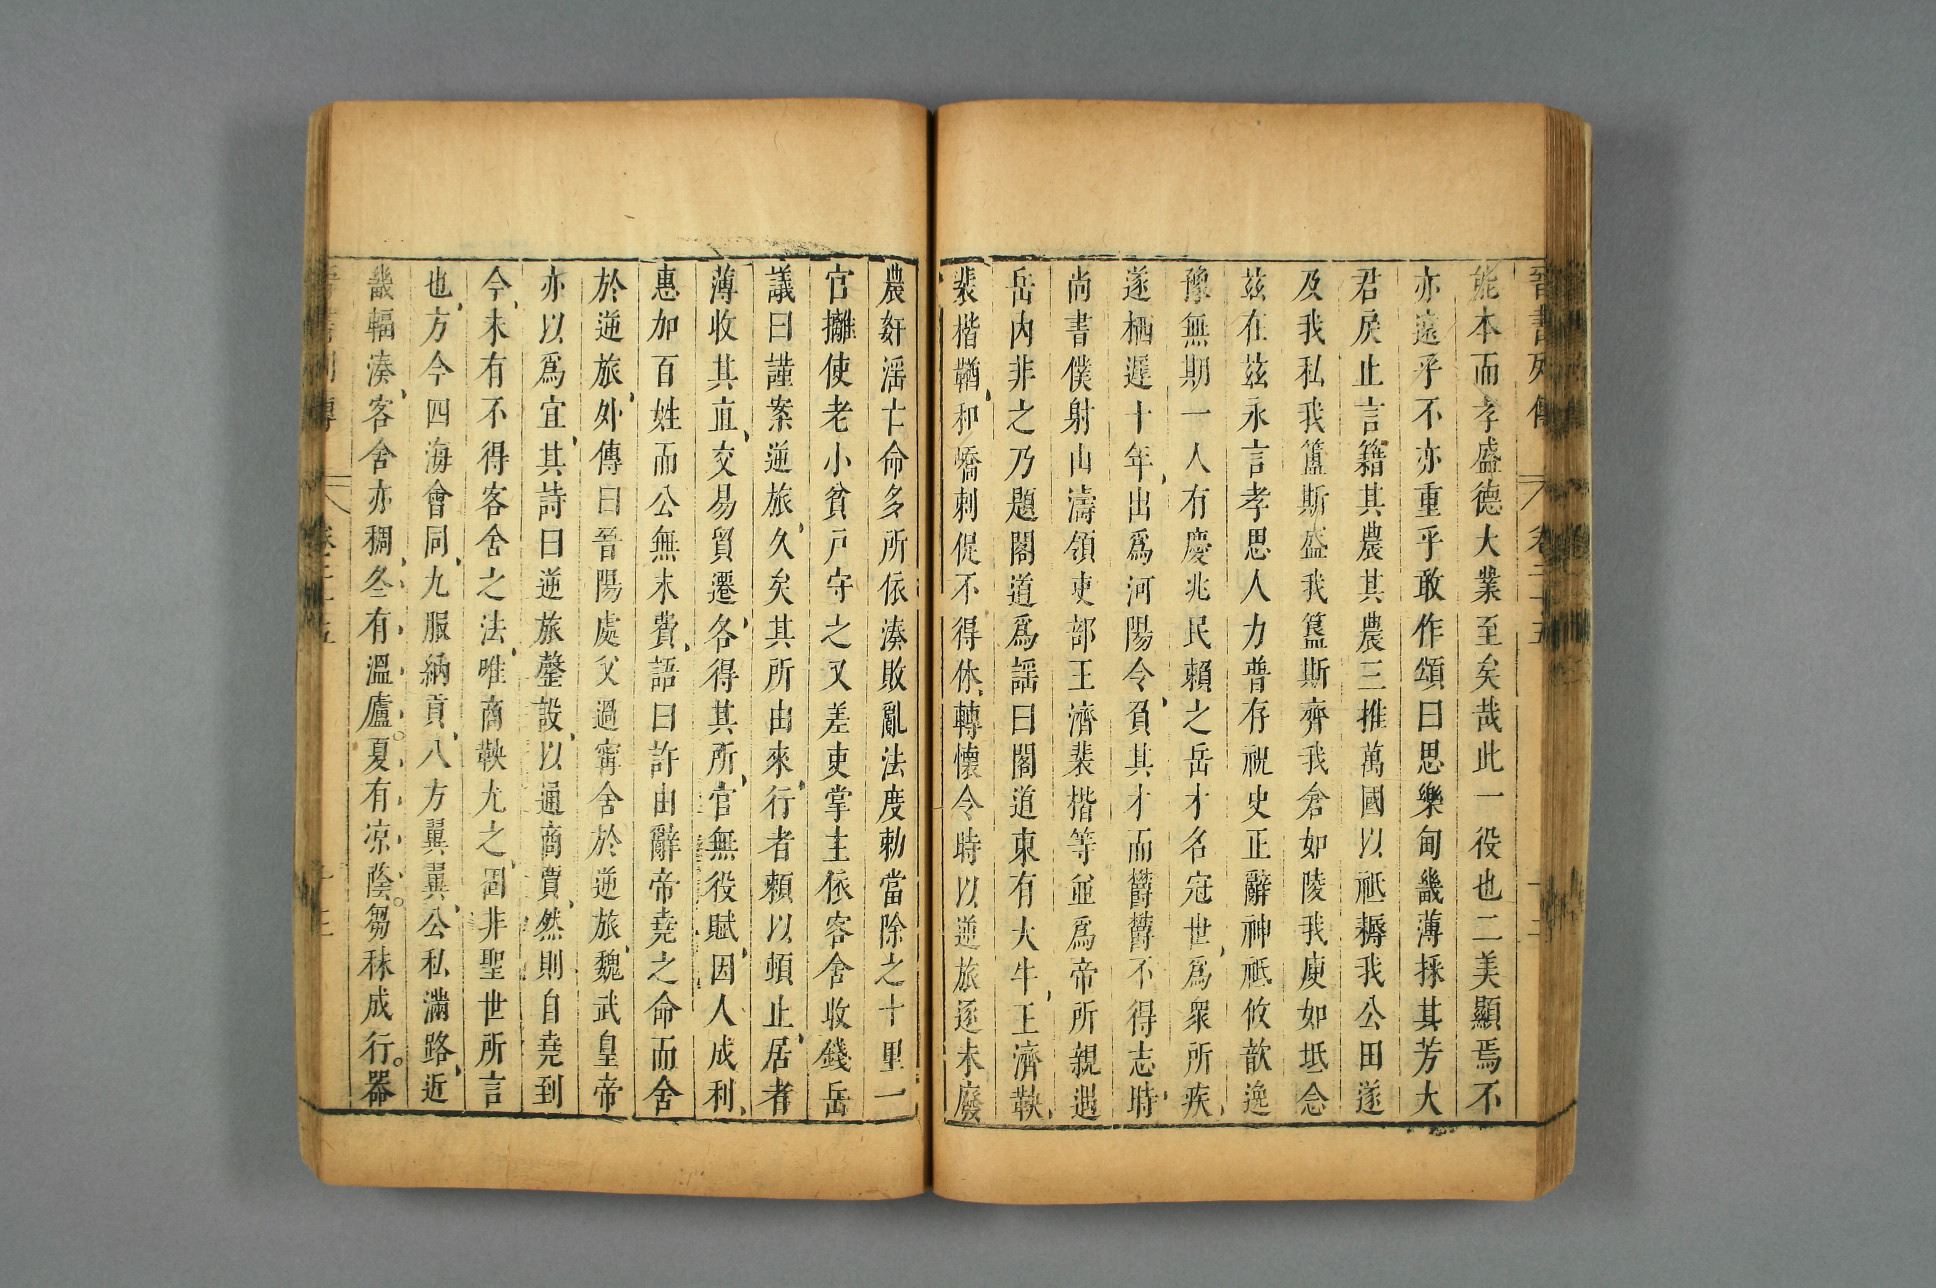 晉書列傳 卷二十五
能本而孝盛德大業至矣哉此一役也二美顯焉不
亦遠乎不亦重乎敢作頌曰思樂甸畿薄採其芳大
君戾止言籍其農其農三推萬國以祗耨我公田遂
及我私我簠斯盛我簋斯齊我倉如陵我庾如坻念
茲在茲永言孝思人力普存祝史正辭神祗攸歆逸
豫無期一人有慶兆民賴之岳才名冠世爲衆所疾
遂栖遲十年出爲河陽令負其才而鬱鬱不得志時
尚書僕射山濤領吏部王濟裴楷等並爲帝所親遇
岳內非之乃題閣道爲謠曰閣道東有大牛王濟鞅
裴楷鞧和嶠刺促不得休轉懷令時以逆旅逐末廢
農奸淫亡命多所依湊敗亂法度勅當除之十里一
官㰚使老小貧戶守之又差吏掌主依客舍收錢岳
議曰謹案逆旅久矣其所由來行者賴以頓止居者
薄收其直交易貿遷各得其所官無役賦因人成利
惠加百姓而公無末費語曰許由辭帝堯之命而舍
於逆旅外傳曰晉陽處父過甯舍於逆旅魏武皇帝
亦以爲宜其詩曰逆旅整設以通商賈然則自堯到
今未有不得客舍之法唯商鞅尤之固非聖世所言
也方今四海會同九服納貢八方翼翼公私滿路近
畿輻湊客舍亦稠冬有溫廬夏有凉蔭芻秣成行器
卷二十五